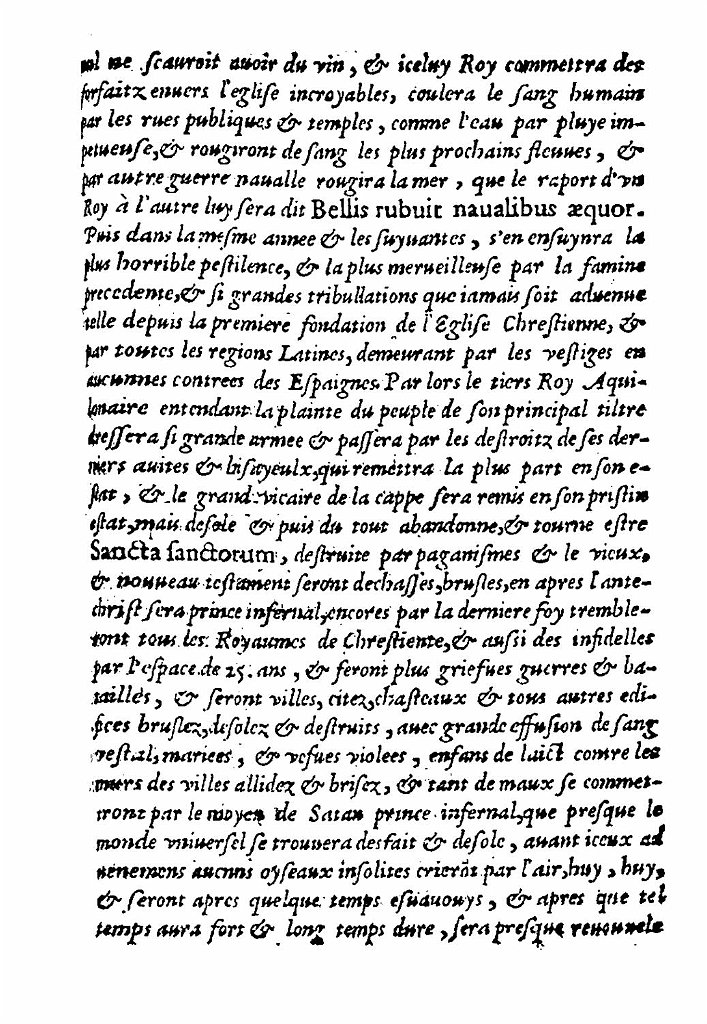 ul ne scauroit auoir du vin, & iceluy Roy commettra des
forfaitz enuers l'eglise incroyables, coulera le sang humain
par les rues publiques & temples, comme l'eau par pluye im-
petueuse, & rougiront de sang les plus prochains fleuues, &
par autre guerre naualle rougira la mer, que le raport d'vn
Roy à l'autre luy sera dit Bellis rubuit naualibus æquor.
Puis dans la mesme annee & les suyuantes, s'en ensuynra la
plus horrible pestilence, & la plus merueilleuse par la famine
precedente, & si grandes tribullations que iamais soit aduenue
telle depuis la premiere fondation de l'Eglise Chrestienne, &
par toutes les regions Latines, demeurant par les vestiges en
aucunnes contrees des Espaignes. Par lors le tiers Roy Aqui-
lonaire entendant la plainte du peuple de son principal tiltre
dressera si grande armee & passera par les destroitz de ses der-
niers auites & bisayeulx, qui remettra la plus part en son e-
stat, & le grand vicaire de la cappe sera remis en son pristin
estat, mais desole & puis du tout abandonne, & tourne estre
Sancta sanctorum, destruite par paganismes & le vieux,
& nouueau testament seront dechasses, brusles, en apres l'ante-
christ sera prince infernal, encores par la derniere foy tremble-
ront tous les Royaumes de Chrestiente, & aussi des infidelles
par l'espace de 25. ans, & feront plus griefues guerres & ba-
tailles, & seront villes, citez, chasteaux & tous autres edi-
fices bruslez, desolez & destruits, auec grande effusion de sang
vestal, mariees, & vefues violees, enfans de laict contre les
murs des villes allidez & brisez, & tant de maux se commet-
tront par le moyen de Satan prince infernal, que presque le
monde vniuersel se trouuera desfait & desole, auant iceux ad
uenemens aucuns oyseaux insolites crierõt par l'air, huy, huy,
& seront apres quelque temps esuauouys, & apres que tel
temps aura fort & long temps dure, sera presque renouuele